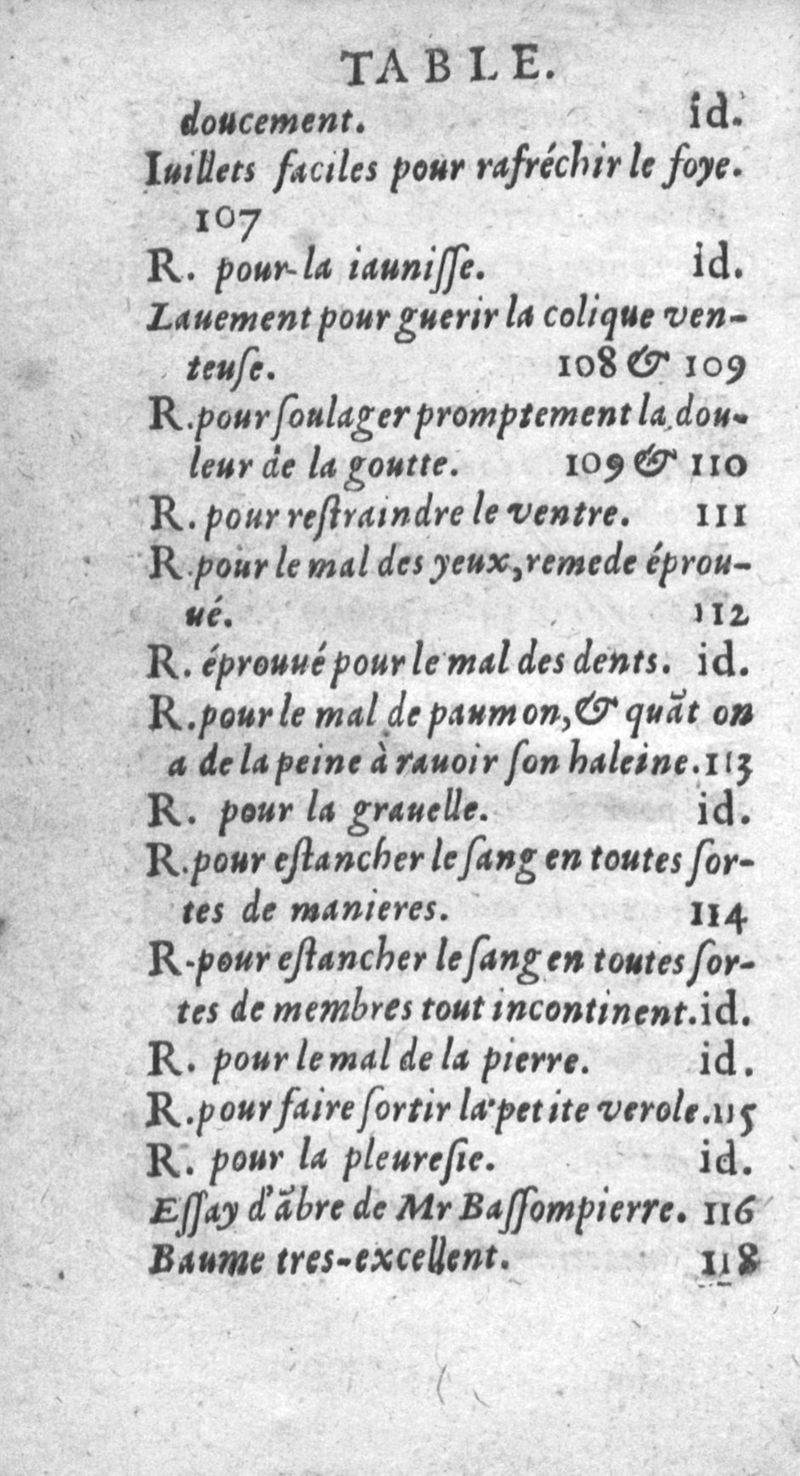 TABLE.
doucement. id.
Iuillets faciles pour rafréchir le foye.
107
R. pour la iauniſſe. id.
Lauement pour guerir la colique ven-
teuſe. 108 & 109
R. pour ſoulager promptement la dou-
leur de la goutte. 109 & 110
R. pour reſtraindre le ventre. 111
R. pour le mal des yeux, remede éprou-
ué. 112
R. éprouué pour le mal des dents. id.
R. pour le mal de paumon, & quãt on
a de la peine à rauoir ſon haleine. 113
R. pour la grauelle. id.
R. pour eſtancher le ſang en toutes ſor-
tes de manieres. 114
R. pour eſtancher le ſang en toutes ſor-
tes de membres tout incontinent. id.
R. pour le mal de la pierre. id.
R. pour faire ſortir la petite verole. 115
R. pour la pleureſie. id.
Eſſay d'ãbre de Mr Baſſompierre. 116
Baume tres-excellent. 118